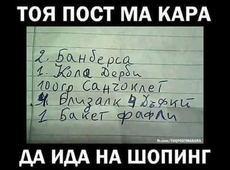 ТОЯ ПОСТ МА КАРА
2. Банберса
1. Кола Дерби
100гр Санчоклет
4 Близалк 4 Дъфки
1 Бакет фафли
ДА ИДА НА ШОПИНГ